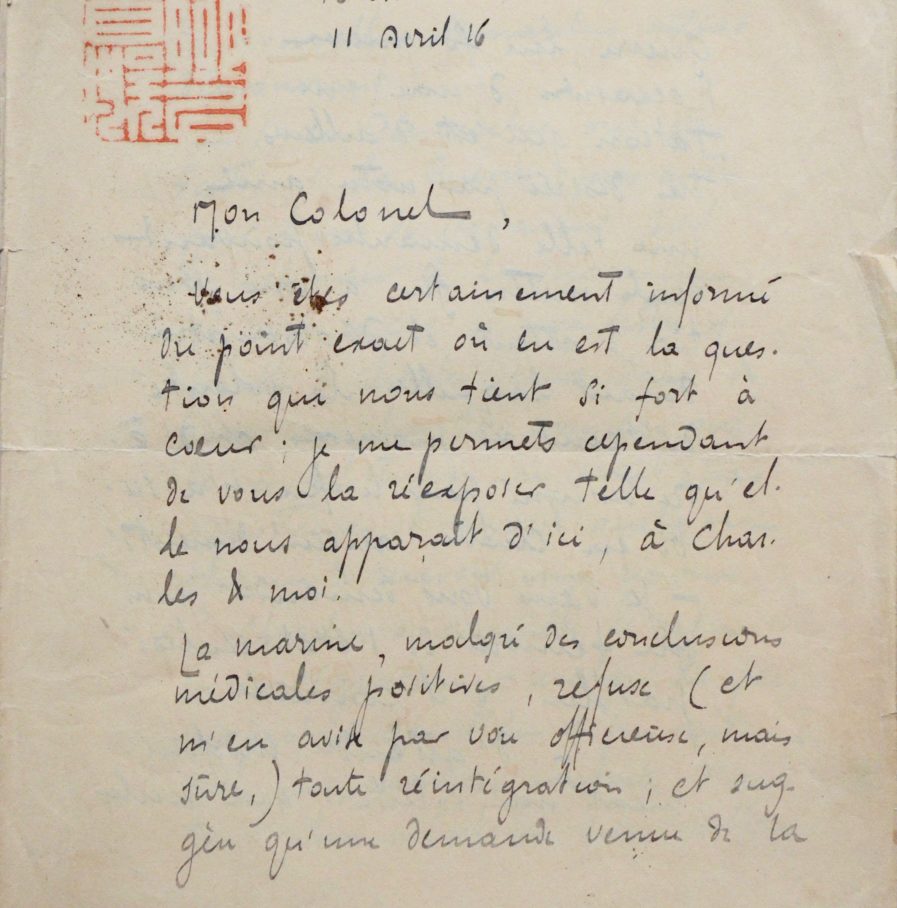 11 Avril 16
Mon Colonel,
Vous êtes certainement informé
du point exact où en est la ques-
tion qui nous tient si fort à
cœur ; je me permets cependant
de vous la réexposer telle qu'el-
le nous apparaît d'ici, à Char-
les & moi.
La marine, malgré des conclusions
médicales positives, refuse (et
m'en avise par voie officieuse, mais
sûre,) toute réintégration ; et sug-
gère qu'une demande venue de la